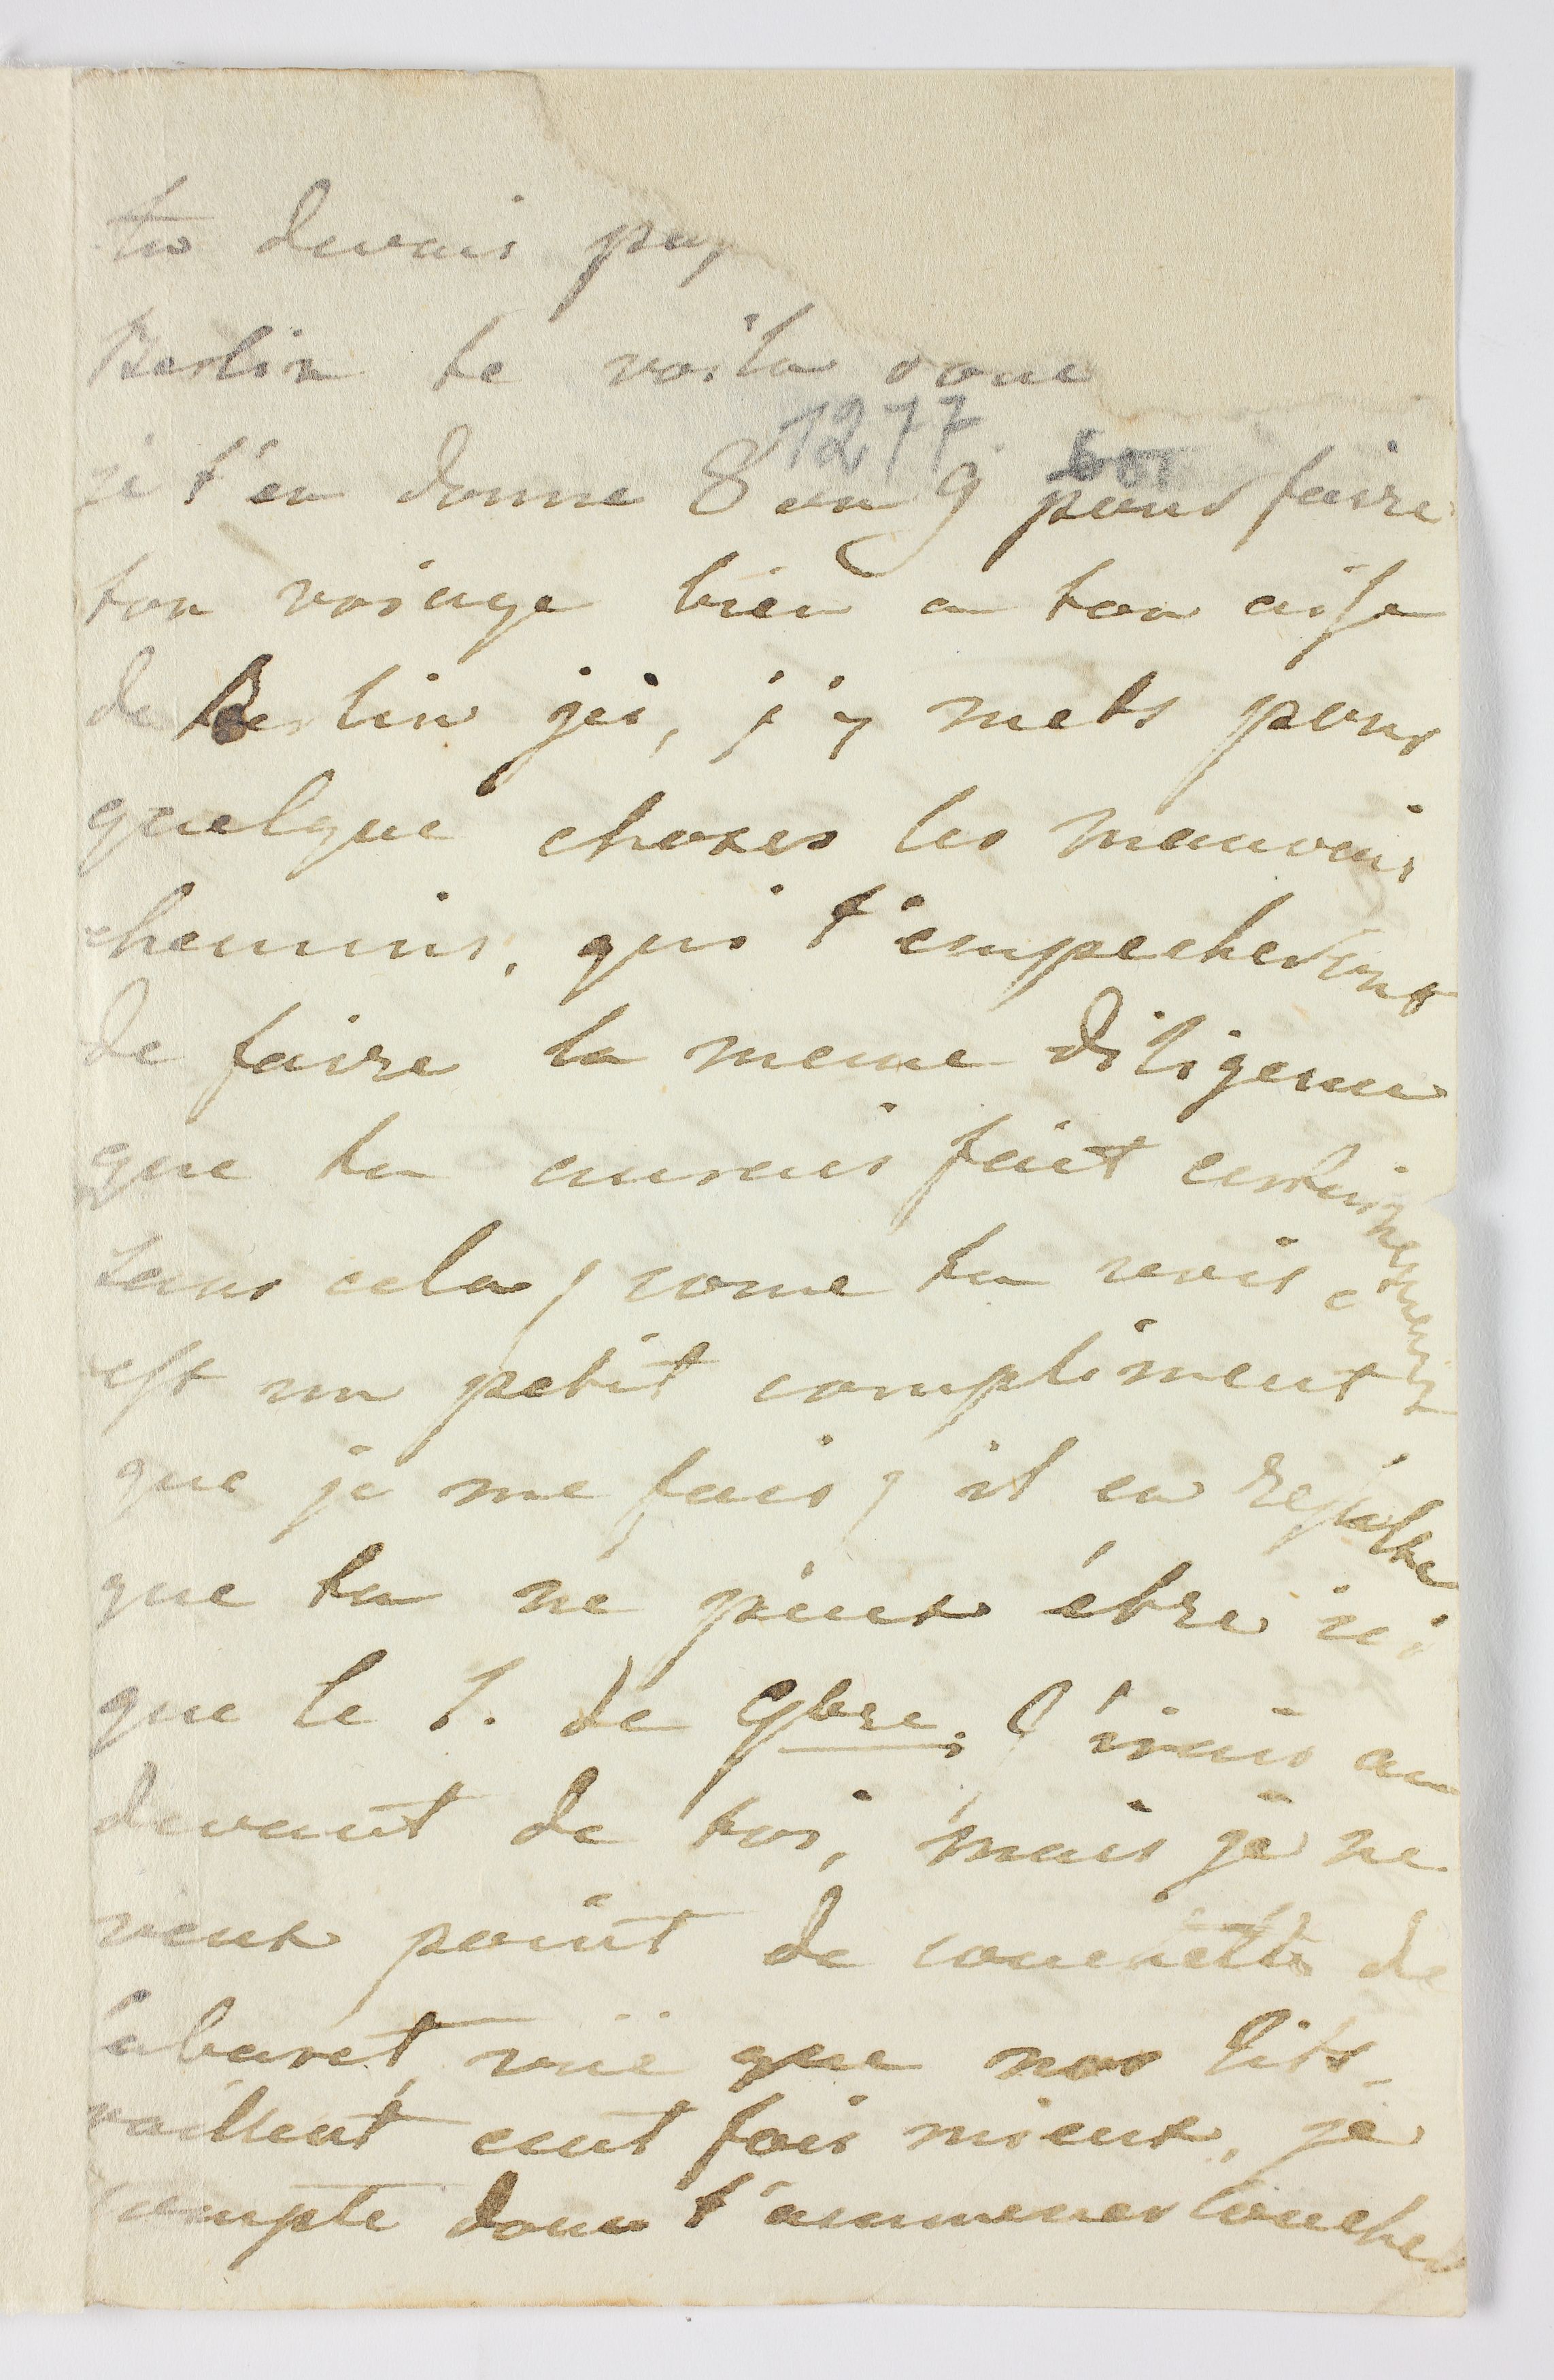 tu devais pay
Berlin te voila donc
1277.
je t'en donne 8 ou 9 pour faire
ton voiage bien a ton aise
de Berlin jci, j'y mets pour
quelque choses les mauvais
chemins, qui t'empecheront
de faire la meme diligence
que tu aurais fait certainement
sans cela, come tu vois c
est un petit compliment
que je me fais, il en resulte
que tu ne peux être ici
que le 7. de 9bre; J'irais au
devant de toi, mais je ne
veux point de de
cabaret, vüe que nos lits
vaillent cent fois mieux, je
compte donc t'ammener coucher